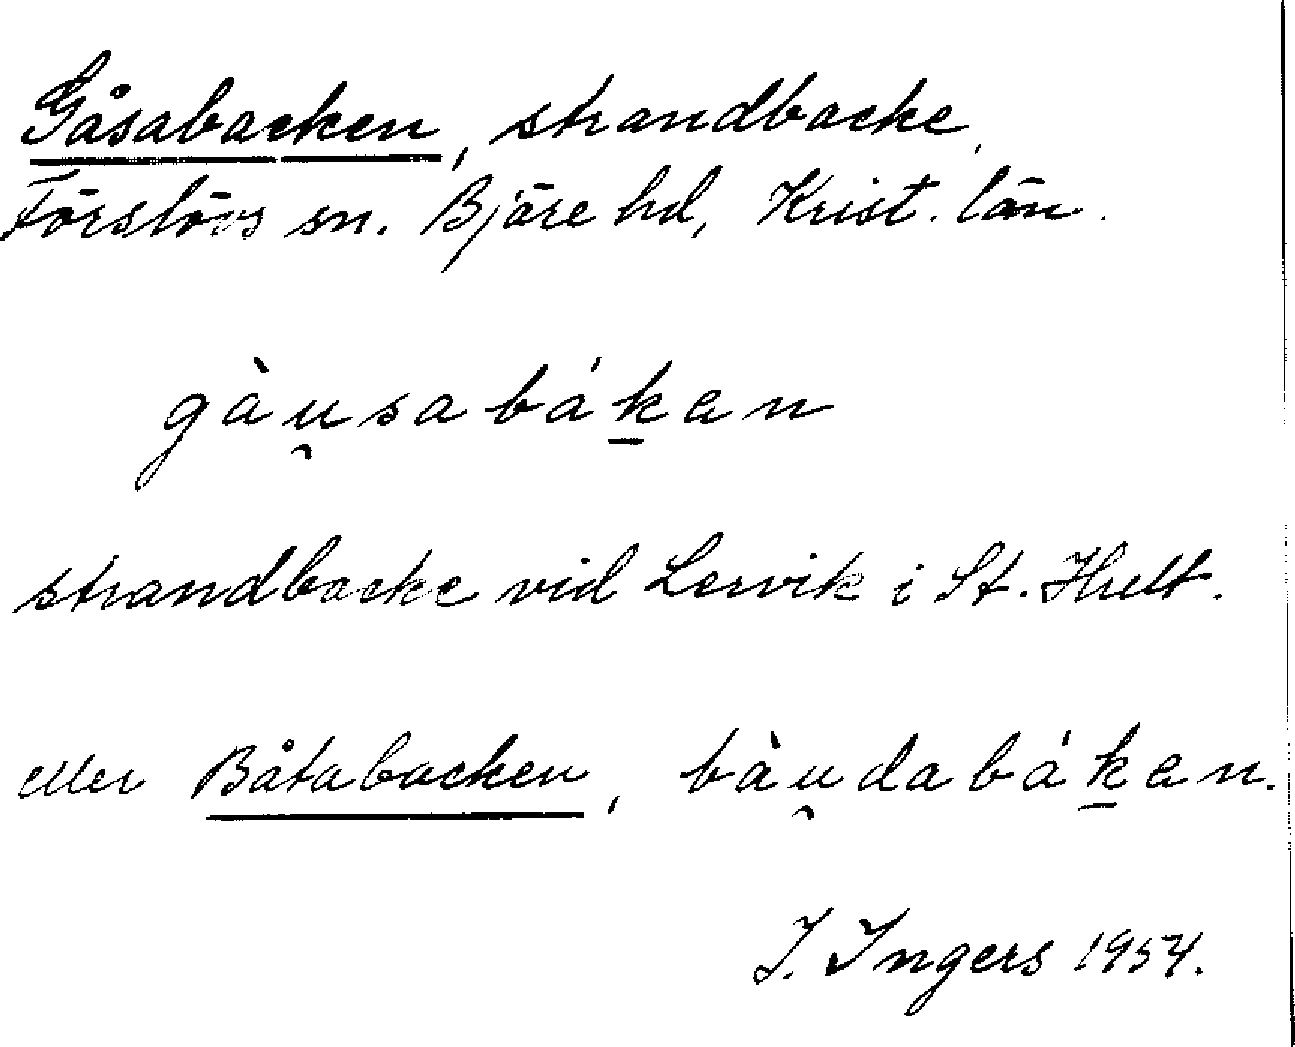 Gåsabacken, strandbacke,
Förslövs sn. Bjäre hd, Krist. län.
gàu̯sabák̲an
strandbacke vid Lervik i St. Hult.
eller Båtabacken, bàu̯dabák̲an.
I. Ingers 1954.